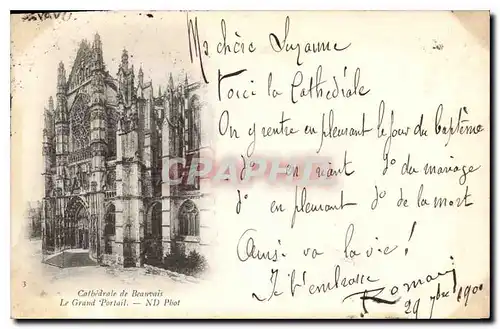 Ma chère Suzanne
Voici la Cathédrale
On y rentre en pleurant le jour du baptême
d° en riant d° du mariage
d° en pleurant d° de la mort
Ainsi va la vie !
Je t'embrasse
Romain
29 7bre 1900
CARTE PARIS
Cathédrale de Beauvais
Le Grand Portail. — ND Phot